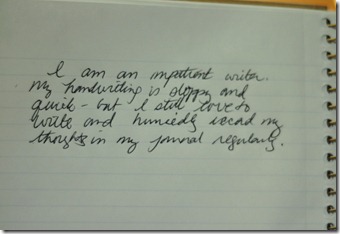 I am an impatient writer.
My handwriting is sloppy and
quick - but I still love to
write and hurriedly record my
thoughts in my journal regularly.